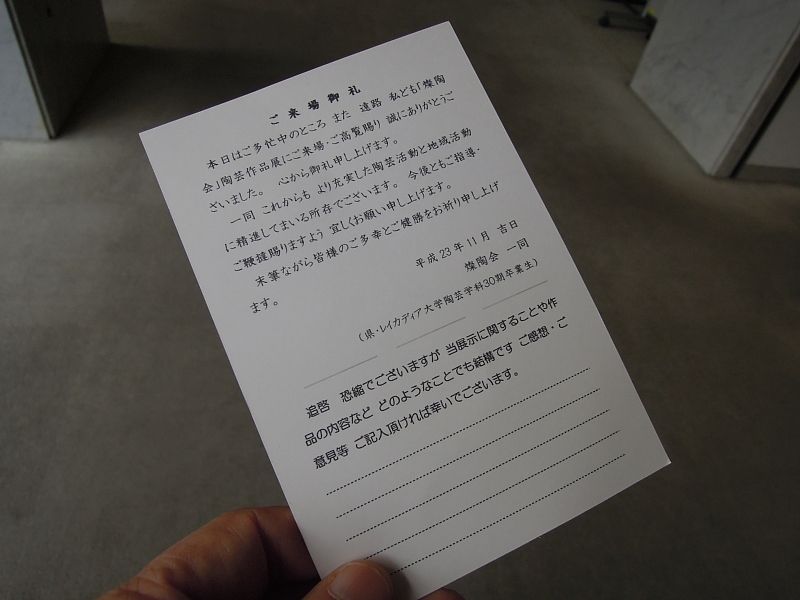 ご来場御礼
本日はご多忙中のところ また 遠路 私ども「燦陶
会」陶芸作品展にご来場・ご高覧賜り 誠にありがとうご
ざいました。 心から御礼申し上げます。
一同 これからも より充実した陶芸活動と地域活動
に精進してまいる所存でございます。 今後ともご指導・
ご鞭撻賜りますよう 宜しくお願い申し上げます。
末筆ながら皆様のご多幸とご健勝をお祈り申し上げ
ます。
平成23年11月 吉日
燦陶会 一同
(県・レイカディア大学陶芸学科30期卒業生)
追啓 恐縮でございますが 当展示に関することや作
品の内容など どのようなことでも結構です ご感想・ご
意見等 ご記入頂ければ幸いでございます。